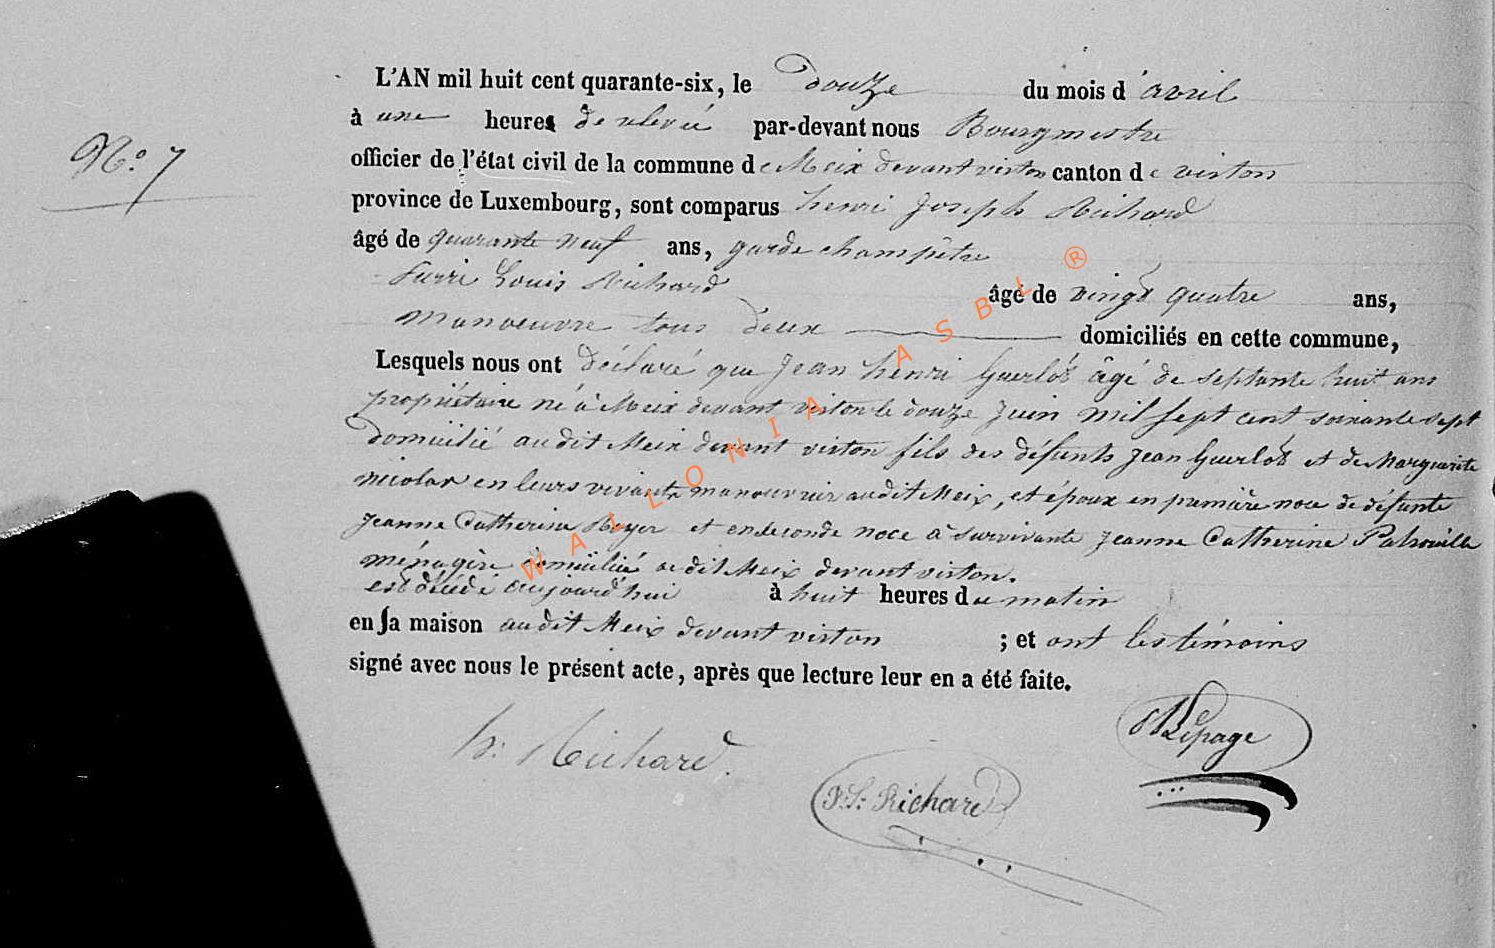 N.º 7
L'AN mil huit cent quarante-six, le douze du mois d'avril
à une heure de relevée par-devant nous Bourgmestre
officier de l'état civil de la commune de Meix devant virton canton de virton
province de Luxembourg, sont comparus henri joseph Richard
âgé de quarante neuf ans, garde champêtre
Louis Richard âgé de vingt quatre ans,
manoeuvre tous deux domiciliés en cette commune,
Lesquels nous ont déclaré que jean henri Guerlot âgé de septante huit ans
propriétaire né à Meix devant virton le douze juin mil sept cent soixante sept
domicilié audit Meix devant virton fils des défunts jean Guerlot et de Marguerite
nicolas en leurs vivants manouvrier audit Meix, et époux en première noce de défunte
jeanne Catherine Royer et en seconde noce à survivante jeanne Catherine
ménagère domicilié audit Meix devant virton.
est décédé aujourd'hui à huit heures du matin
en sa maison audit Meix devant virton ; et ont les témoins
signé avec nous le présent acte, après que lecture leur en a été faite.
h: Richard.
P.L: Richard
Lepage
WALLONIA ASBL ®